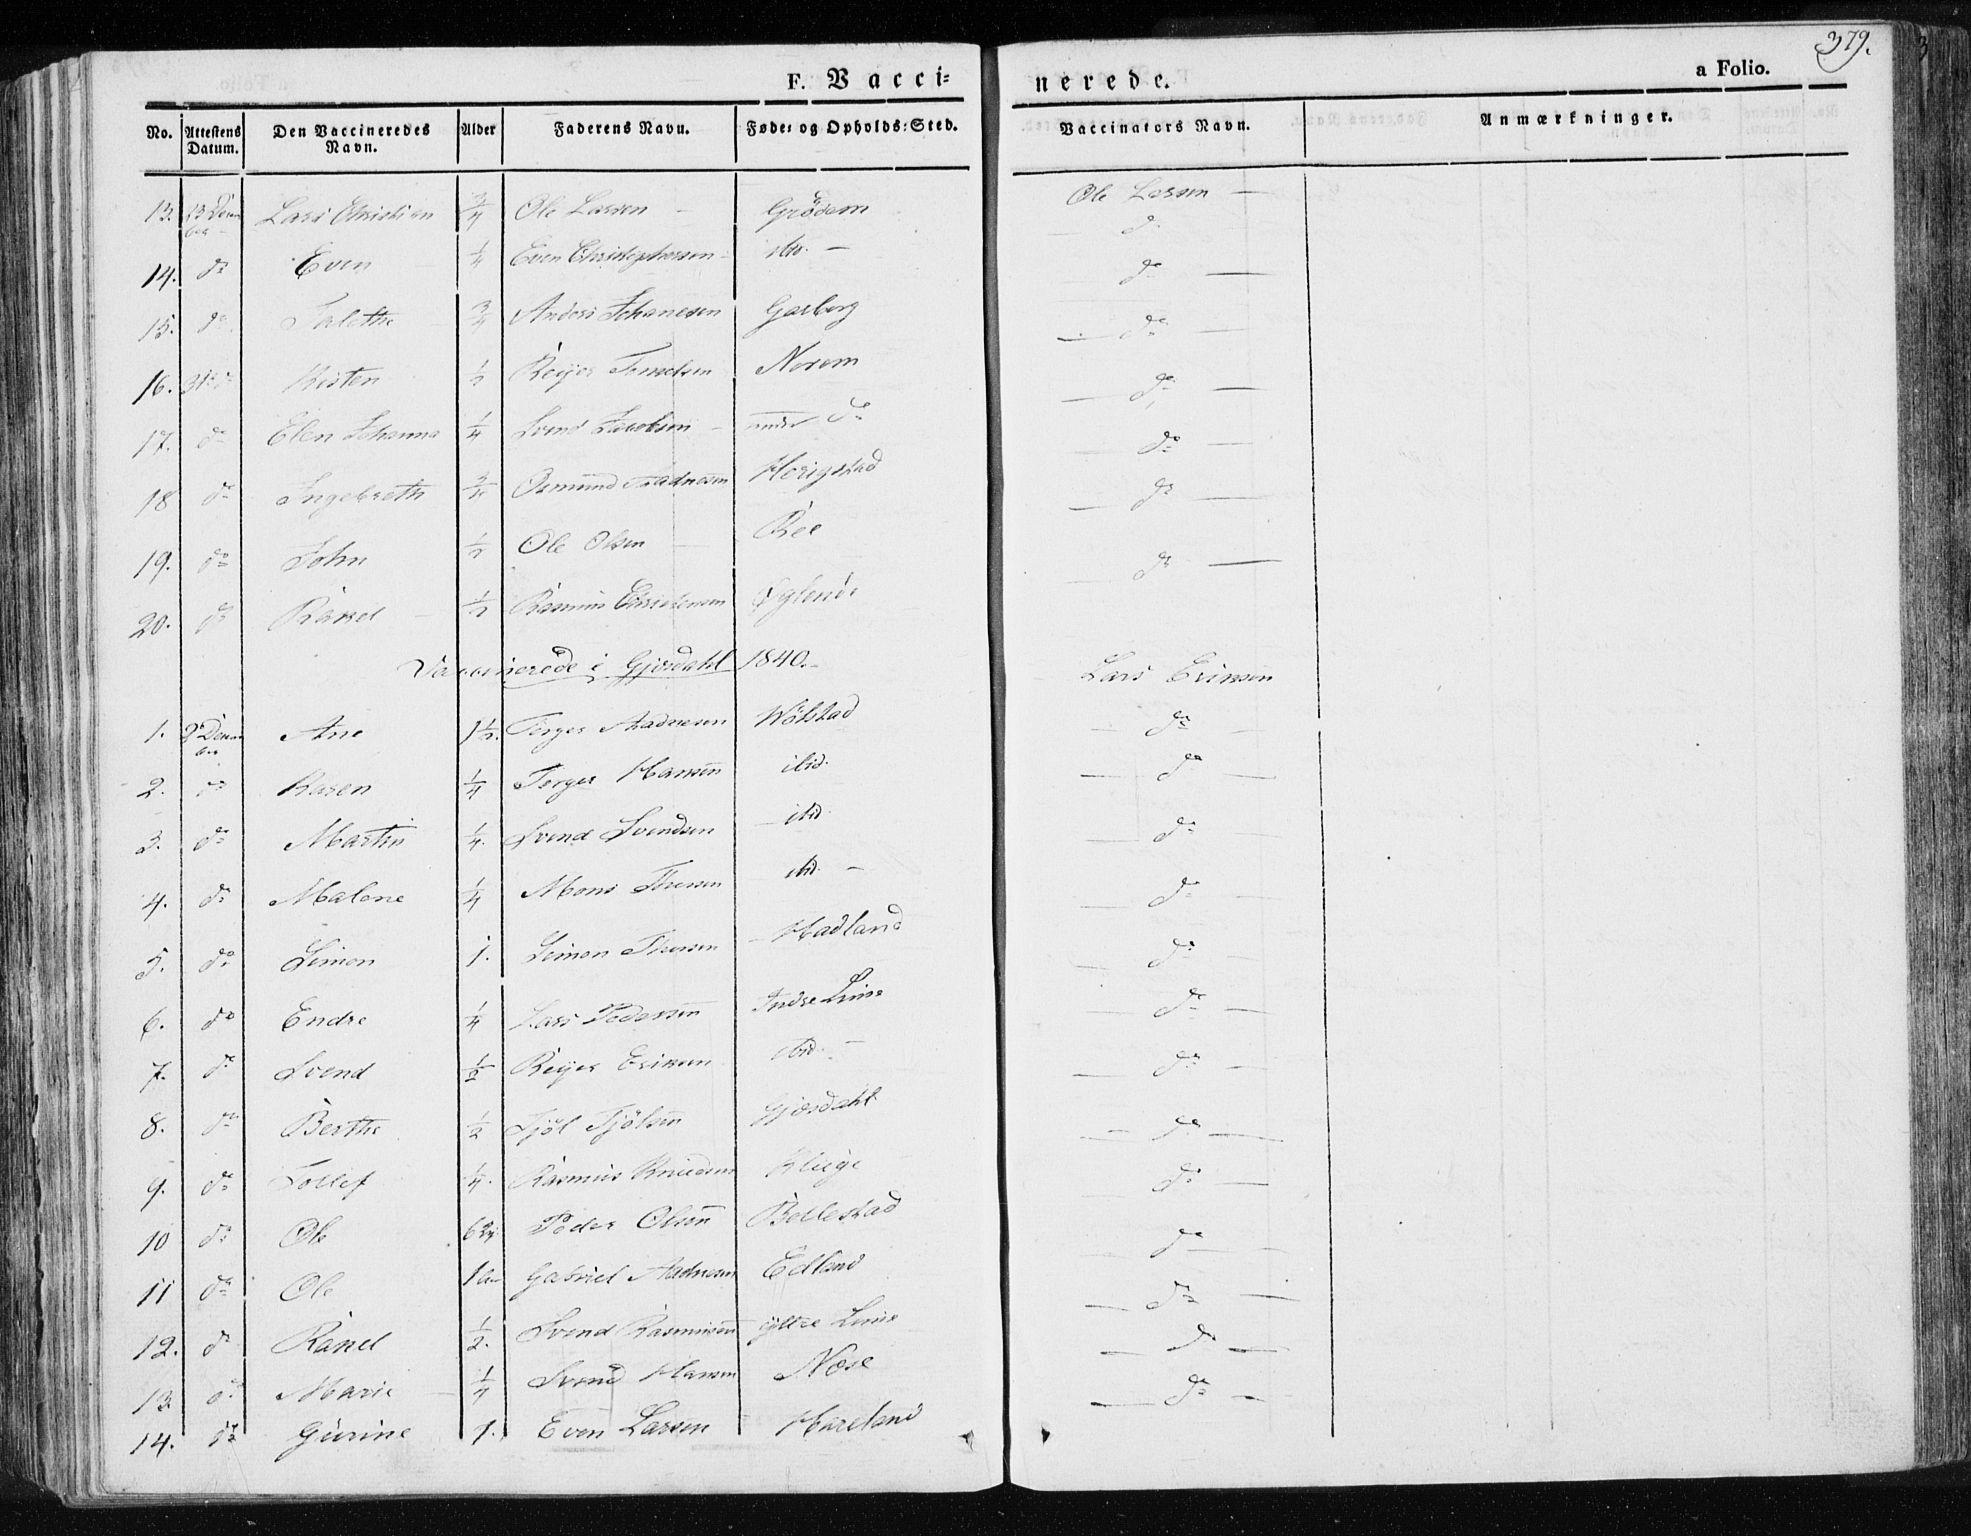 379.
F. Vacci= nerede. a Folio.
No. Attestens Datum. Den Vaccineredes Navn. Alder Faderens Navn. Føde= og Opholds=Sted. Vaccinators Navn. Anmærkninger.
13. 13 Decem ber Lars Christian 3/4 Ole Larsen – Grödem Ole Larsen –
14. do Even 1/4 Even Christophersen ibid. – do
15. do Talethe 3/4 Anders Johanesen Garborg do –
16. 31te do Kisten 1/2 Reijer Tonnelsen Norem – do –
17. do Elen Johanna 1/4 Svend Jacobsen – under do – do –
18 do Ingebreth Osmund Aadnesen Hörigstad do –
19. do John 1/2 Ole Olsen – Ree – do –
20. do Ranel 1/2 Rasmus Christensen Öglend – do –
Vaccinerede i Gjesdahl 1840.–
1. Decem ber Ane 1 1/2. Terger Aadnesen Wölstad Lars Eriksen
2. do Karen 1/4 Terger Hansen ibid. – do –
3. do Martin 1/4. Svend Svendsen ibid. – do –
4. do Malene 1/4 Mons Thorsen ibid. – – do –
5. do Simon 1. Simon Thorsen – Madland – do –
6. do Endre 1/4 Lars Pedersen Indre Lime – do –
7. do Svend 1/2 Reijer Eriksen ibid. – – do –
8. do Berthe 1/2 Tjöl Tjölsen Gjesdahl – do –
9. do Tollef 1/4. Rasmus Knudsen Kluge – do –
10 do Ole Peder Olsen Bollestad – do –
11 do Ole Gabriel Aadnesen Edland – do –
12. do Ranel 1/2. Svend Rasmusen ÿttre Lime – do –
13 do Marie – 1/4 Svend Hansen Nose – do –
14. do Gurine 1. Even Larsen Mareland – do –